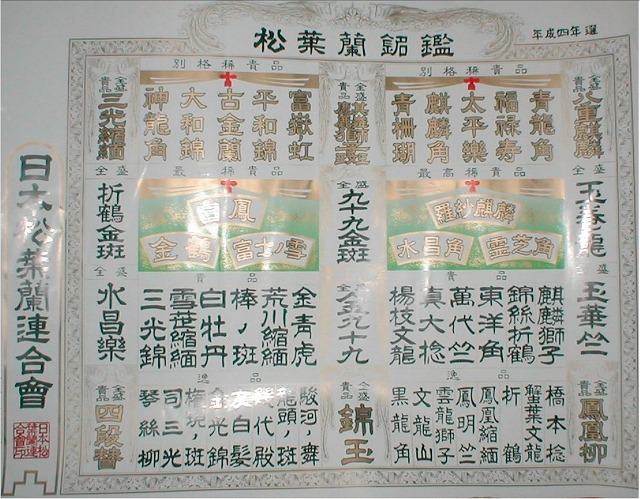 松葉蘭銘鑑
平成四年選
別格稀貴品
別格稀貴品
貴品 全盛
八重麒麟
青龍角
福禄寿
太平樂
麒麟角
青珊瑚
富嶽虹
平和錦
古金蘭
大和錦
神龍角
貴品 全盛
三光縮緬
最高稀貴品
最高稀貴品
羅紗麒麟
霊芝角
水昌角
全盛
九十九金斑
白鳳
富士ノ雪
金鶴
全盛
折鶴金斑
全盛
玉華竺
貴品
麒麟獅子
錦絲折鶴
東洋角
萬代竺
真大捻
楊枝文龍
九十九
貴品
金青虎
荒川縮緬
棒ノ斑
白牡丹
雪笹縮緬
三光錦
全盛
水昌樂
貴品 全盛
鳳凰柳
逸品
橋本捻
蟹葉文龍
折鶴
鳳凰縮緬
鳳明竺
雲龍獅子
文龍山
黒龍角
貴品 全盛
錦玉
逸品
駿河ノ舞
龍頭ノ斑
代殿
白髪
金光錦
司三光
琴絲柳
貴品 全盛
四段替
日本松葉蘭連合會
日本松葉蘭連合会